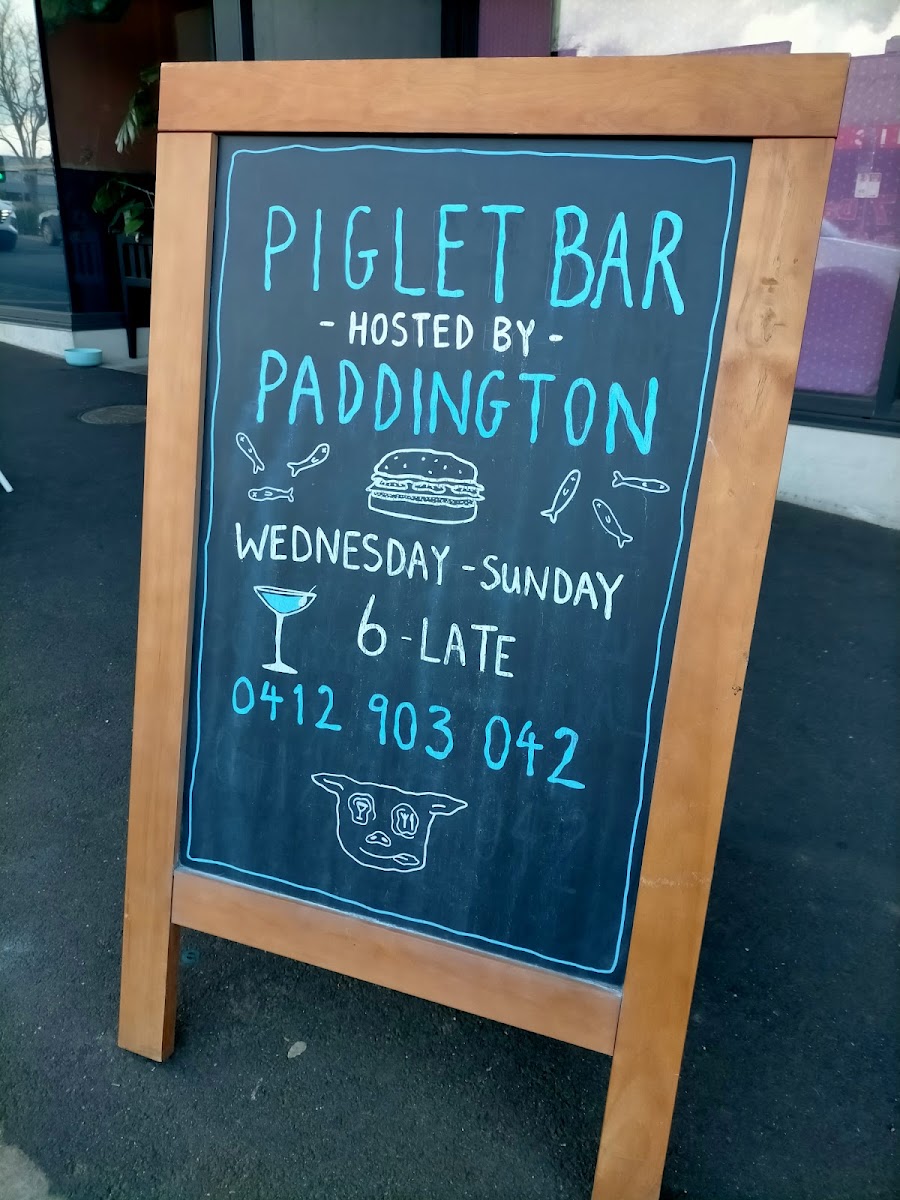 PIGLET BAR
- HOSTED BY -
PADDINGTON
WEDNESDAY - SUNDAY
6 - LATE
0412 903 042